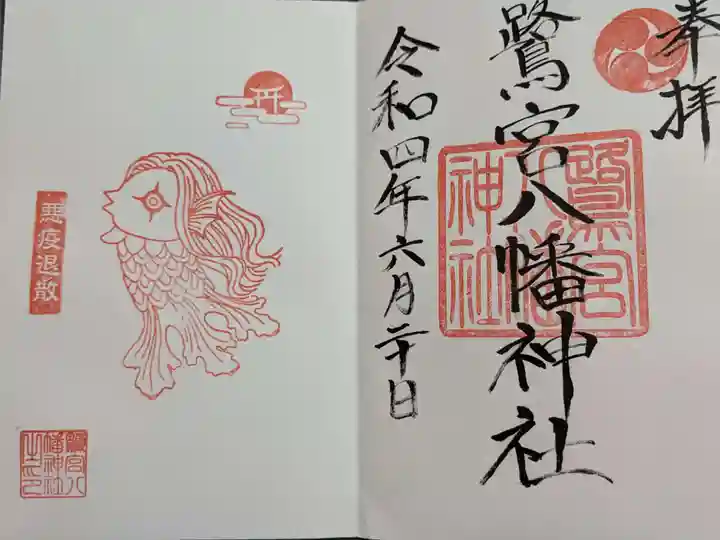 奉拝
鷺宮八幡神社
令和四年六月二十日
鷺宮
八幡
神社
悪疫退散
鷺宮八
幡神社
之印